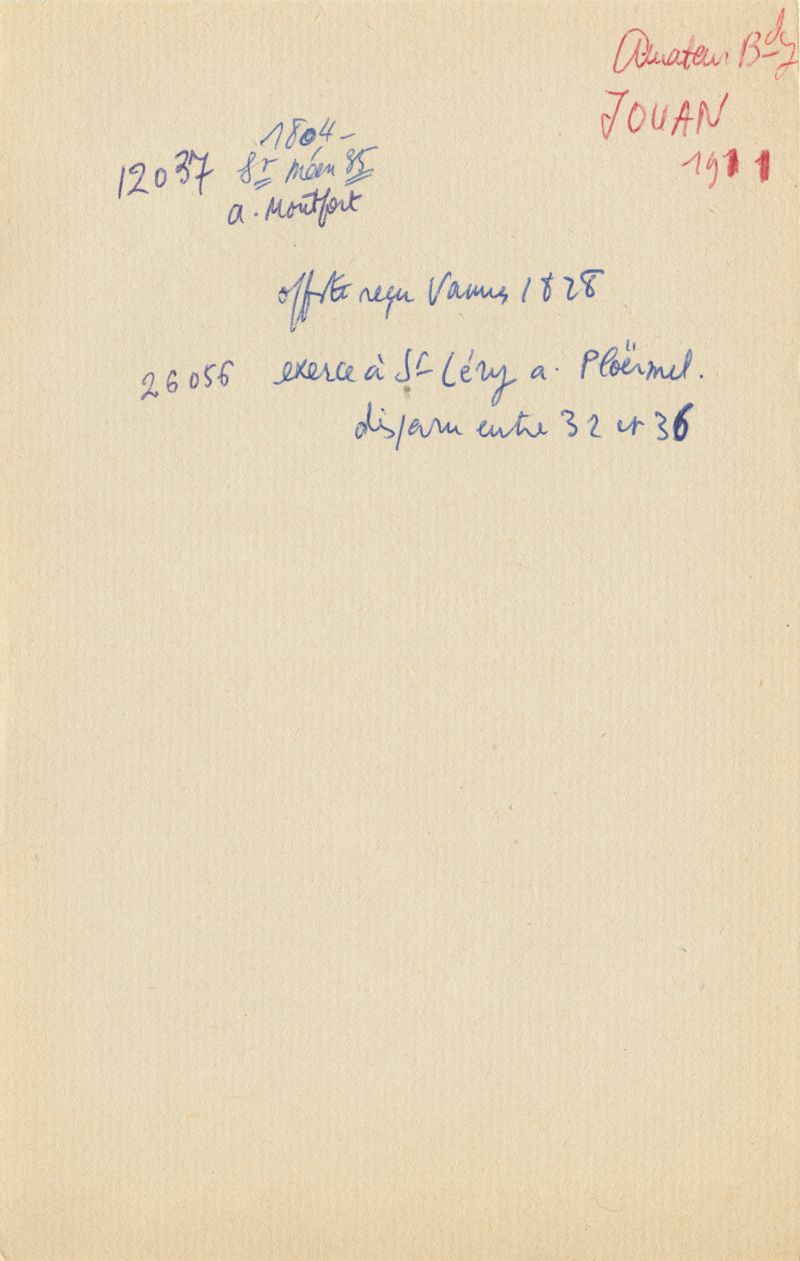 Amateur Bdy
JOUAN
1911
1804-
12037 St Méen 35
a. Montfort
offste reçu Vannes 1828
26056 exerce à St Léry a. Ploërmel.
disparu entre 32 et 36